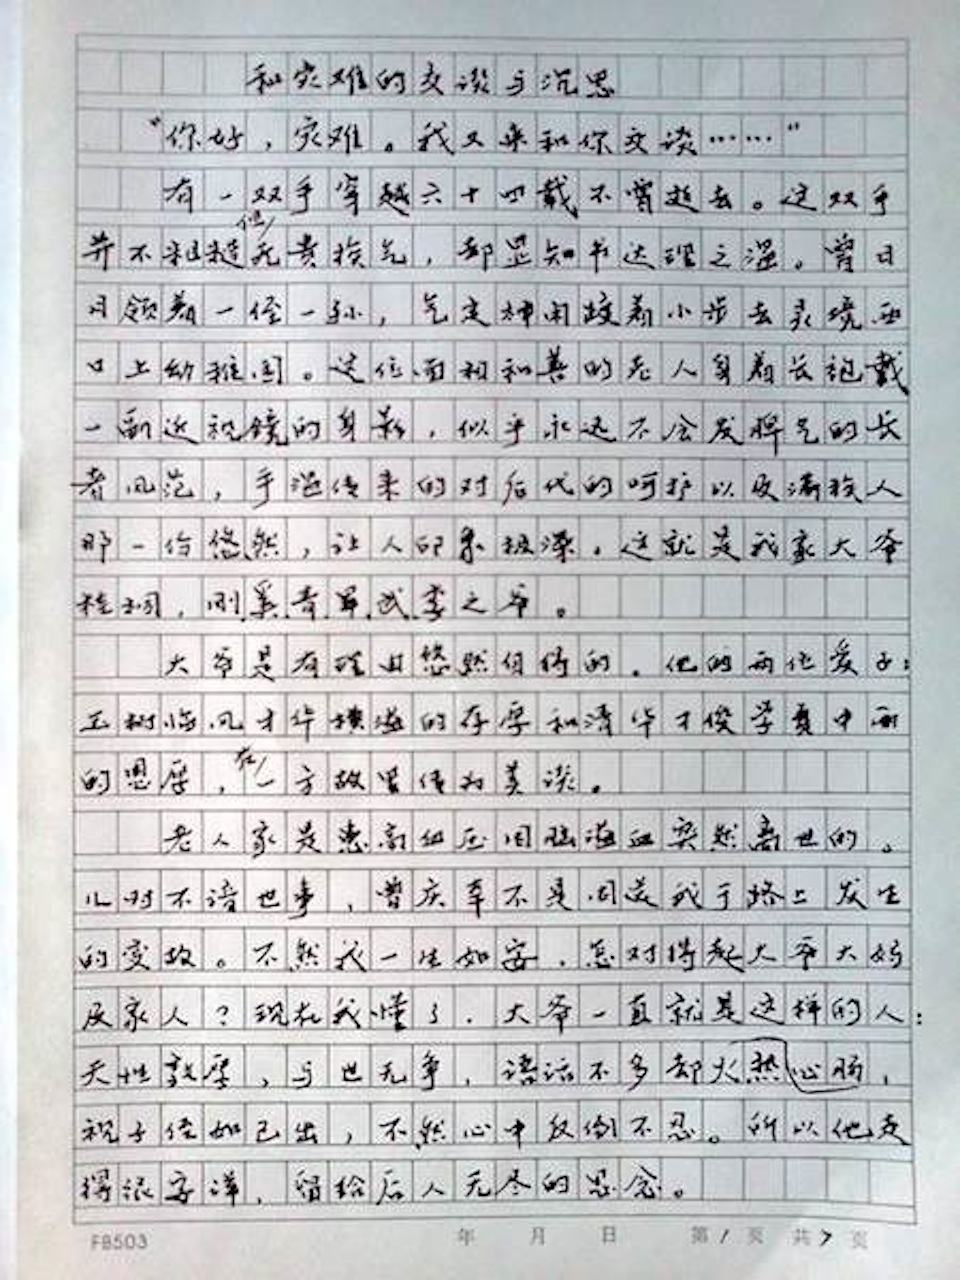 和灾难的交谈与沉思
“你好，灾难。我又来和你交谈……”
有一双手穿越六十四载不曾逝去。这双手
并不粗糙但无贵族气，却显知书达理之温。曾日
日领着一侄一孙，气定神闲踱着小步去灵境西
口上幼稚园。这位面相和善的老人身着长袍戴
一副近视镜的身影，似乎永远不会发脾气的长
者风范，手温传来的对后代的呵护以及满族人
那一份悠然，让人印象极深。这就是我家大爷
桂，刚奚青军武李之爷。
大爷是有理由悠然自得的。他的两位爱子：
玉树临风才华横溢的存厚和清华才俊学贯中西
的恩厚，在一方故里传为美谈。
老人家是患高血压因脑溢血突然离世的。
儿时不谙世事，曾庆幸不是同送我于路上发生
的变故。不然我一生如安，怎对得起大爷大妈
及家人？现在我懂了。大爷一直就是这样的人：
天性敦厚，与世无争，语话不多却火热心肠，
视子侄如己出，不然心中反倒不忍。所以他走
得很安详，留给后人无尽的思念。
FB503 年 月 日 第1页 共7页